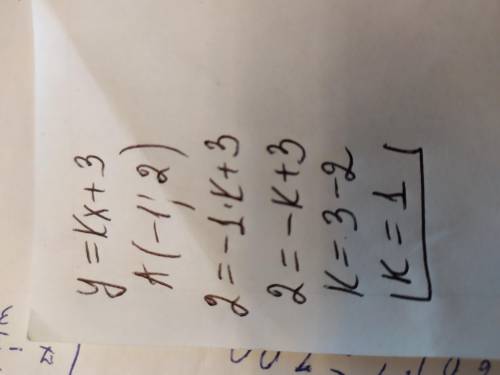 y = kx + 3
A (-1; 2)
2 = -1·k + 3
2 = -k + 3
k = 3 - 2
k = 1